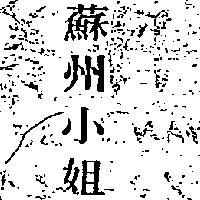 蘇州小姐